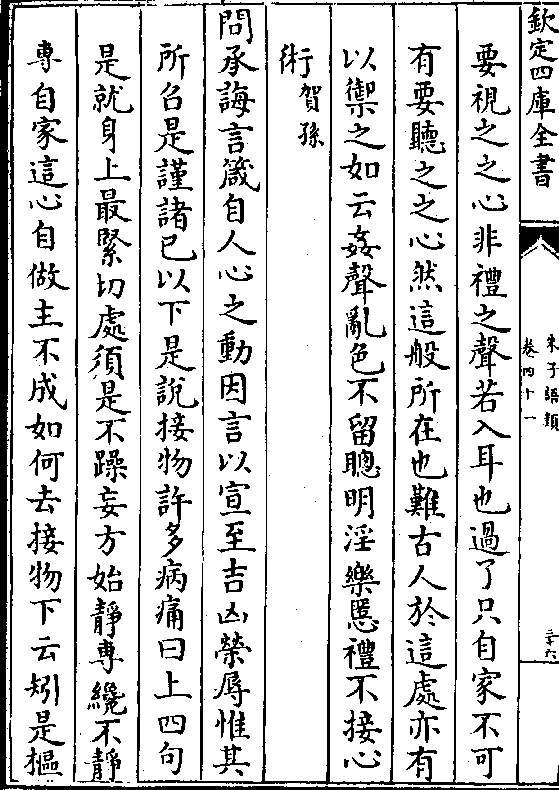 欽定四庫全書
朱子語類
卷四十一
三十六
要視之之心非禮之聲若入耳也過了只自家不可
有要聽之之心然這般所在也難古人於這處亦有
以禦之如云姦聲亂色不留聰明淫樂慝禮不接心
術賀孫
問承誨言箴自人心之動因言以宣至吉凶榮辱惟其
所召是謹諸已以下是說接物許多病痛曰上四句
是就身上最緊切處須是不躁妄方始靜專纔不靜
專自家這心自做主不成如何去接物下云矧是樞